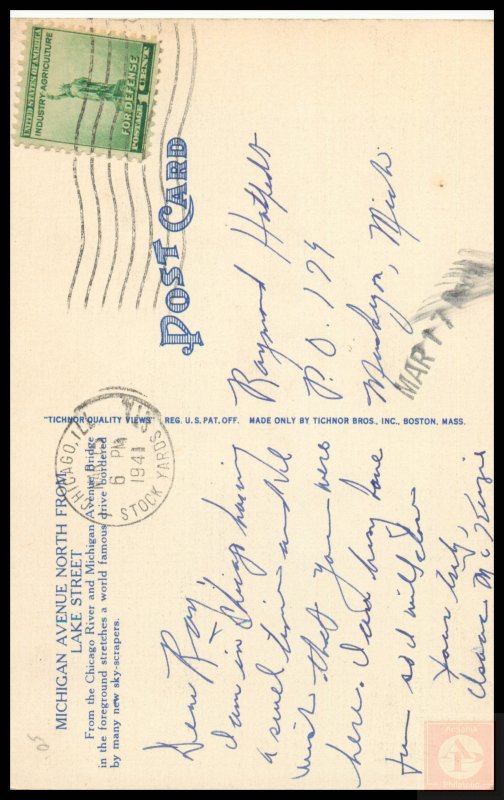 MICHIGAN AVENUE NORTH FROM
LAKE STREET
From the Chicago River and Michigan Avenue Bridge
in the foreground stretches a world famous drive bordered
by many new sky-scrapers.
CHICAGO, ILL.
6 PM
1941
STOCK YARDS
UNITED STATES OF AMERICA
INDUSTRY AGRICULTURE
FOR DEFENSE
POSTAGE 1 CENT
POST CARD
Dear Ray,
I am in Chicago having
a swell time and
wish that you were
here. I am busy have
fun so I will close
Yours truly,
Isaac McKenzie
"TICHNOR QUALITY VIEWS" REG. U.S. PAT. OFF. MADE ONLY BY TICHNOR BROS., INC., BOSTON, MASS.
Raymond
P.O. 179
Muskegon, Mich
MAR 17